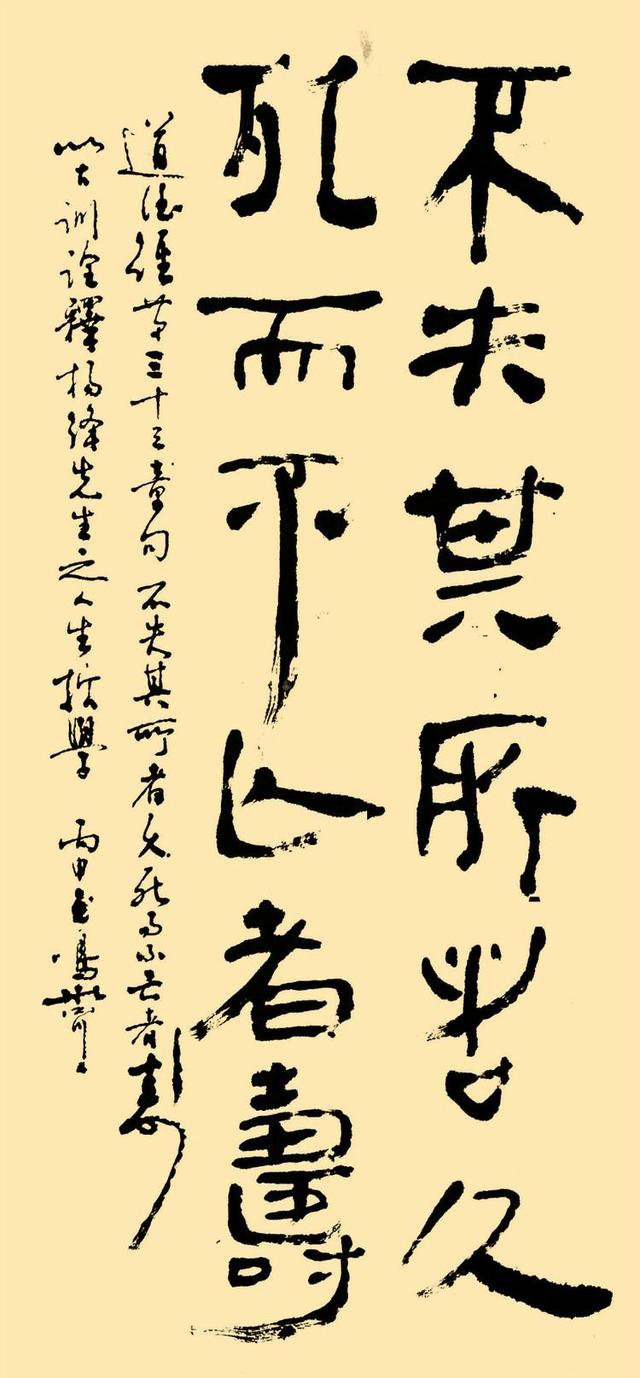 不失其所者久
死而不亡者壽
道德經第三十三章句 不失其所者久死而不亡者壽
以古訓詮釋楊絳先生之人生哲學 丙申